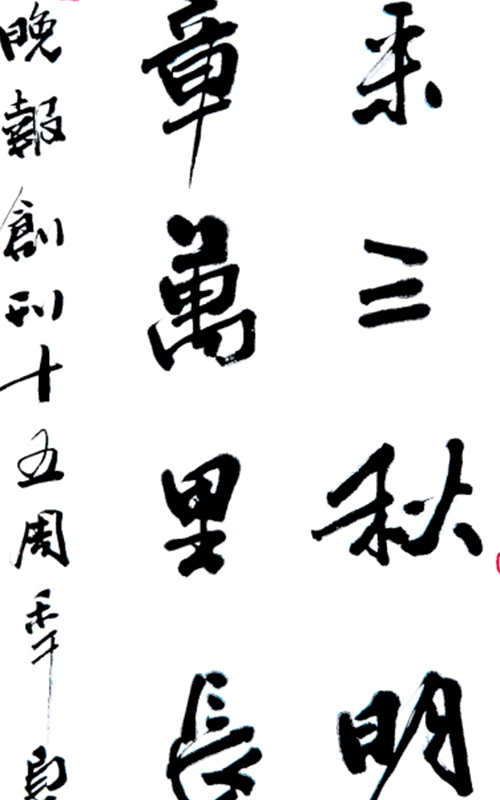 来三秋明
章萬里長
晚報創刊十五周秊